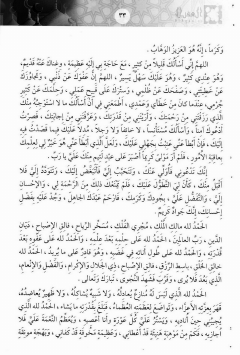 ٣٣
وَكَرَماً، إِنَّهُ هُوَ الْعَزِيزُ الْوَهَّابُ.
اللهم إِنِّي أَسْأَلُكَ قَلِيلاً مِنْ كَثِيرٍ، مَعَ حَاجَةٍ بِي إِلَيْهِ عَظِيمَةٍ، وَغِنَاكَ عَنْهُ قَدِيمٌ،
وَهُوَ عِنْدِي كَثِيرٌ، وَهُوَ عَلَيْكَ سَهْلٌ يَسِيرٌ، اللهم إِنَّ عَفْوَكَ عَنْ ذَنْبِي، وَتَجَاوُزَكَ
عَنْ خَطِيئَتِي، وَصَفْحَكَ عَنْ ظُلْمِي، وَسِتْرَكَ عَلَى قَبِيحِ عَمَلِي، وَحِلْمَكَ عَنْ كَثِيرِ
جُرْمِي، عِنْدَمَا كَانَ مِنْ خَطَايَ وَعَمْدِي، أَطْمَعَنِي فِي أَنْ أَسْأَلَكَ مَا لَا أَسْتَوْجِبُهُ مِنْكَ
الَّذِي رَزَقْتَنِي مِنْ رَحْمَتِكَ، وَأَرَيْتَنِي مِنْ قُدْرَتِكَ، وَعَرَّفْتَنِي مِنْ إِجَابَتِكَ، فَصِرْتُ
أَدْعُوكَ آمِناً، وَأَسْأَلُكَ مُسْتَأْنِساً، لَا خَائِفاً وَلَا وَجِلاً، مُدِلاًّ عَلَيْكَ فِيمَا قَصَدْتُ فِيهِ
إِلَيْكَ، فَإِنْ أَبْطَأَ عَنِّي عَتَبْتُ بِجَهْلِي عَلَيْكَ، وَلَعَلَّ الَّذِي أَبْطَأَ عَنِّي هُوَ خَيْرٌ لِي لِعِلْمِكَ
بِعَاقِبَةِ الْأُمُورِ، فَلَمْ أَرَ مَوْلًى كَرِيماً أَصْبَرَ عَلَى عَبْدٍ لَئِيمٍ مِنْكَ عَلَيَّ يَا رَبِّ.
إِنَّكَ تَدْعُونِي فَأُوَلِّي عَنْكَ، وَتَتَحَبَّبُ إِلَيَّ فَأَتَبَغَّضُ إِلَيْكَ، وَتَتَوَدَّدُ إِلَيَّ فَلَا
أَقْبَلُ مِنْكَ، كَأَنَّ لِيَ التَّطَوُّلَ عَلَيْكَ، فَلَمْ يَمْنَعْكَ ذَلِكَ مِنَ الرَّحْمَةِ لِي، وَالْإِحْسَانِ
إِلَيَّ، وَالتَّفَضُّلِ عَلَيَّ، بِجُودِكَ وَكَرَمِكَ، فَارْحَمْ عَبْدَكَ الْجَاهِلَ، وَجُدْ عَلَيْهِ بِفَضْلِ
إِحْسَانِكَ، إِنَّكَ جَوَادٌ كَرِيمٌ.
الْحَمْدُ لله مَالِكِ الْمُلْكِ، مُجْرِي الْفُلْكِ، مُسَخِّرِ الرِّيَاحِ، فَالِقِ الْإِصْبَاحِ، دَيَّانِ
الدِّينِ، رَبِّ الْعَالَمِينَ، الْحَمْدُ لله عَلَى حِلْمِهِ بَعْدَ عِلْمِهِ، وَالْحَمْدُ لله عَلَى عَفْوِهِ بَعْدَ
قُدْرَتِهِ، وَالْحَمْدُ لله عَلَى طُولِ أَنَاتِهِ فِي غَضَبِهِ، وَهُوَ قَادِرٌ عَلَى مَا يُرِيدُ، الْحَمْدُ لله
خَالِقِ الْخَلْقِ، بَاسِطِ الرِّزْقِ، فَالِقِ الْإِصْبَاحِ، ذِي الْجَلَالِ وَالْإِكْرَامِ، وَالْفَضْلِ وَالْإِنْعَامِ،
الَّذِي بَعُدَ فَلَا يُرَى، وَقَرُبَ فَشَهِدَ النَّجْوَى، تَبَارَكَ وَتَعَالَى.
الْحَمْدُ لله الَّذِي لَيْسَ لَهُ مُنَازِعٌ يُعَادِلُهُ، وَلَا شَبِيهٌ يُشَاكِلُهُ، وَلَا ظَهِيرٌ يُعَاضِدُهُ،
قَهَرَ بِعِزَّتِهِ الْأَعِزَّاءَ، وَتَوَاضَعَ لِعَظَمَتِهِ الْعُظَمَاءُ، فَبَلَغَ بِقُدْرَتِهِ مَا يَشَاءُ، الْحَمْدُ لله الَّذِي
يُجِيبُنِي حِينَ أُنَادِيهِ، وَيَسْتُرُ عَلَيَّ كُلَّ عَوْرَةٍ وَأَنَا أَعْصِيهِ، وَيُعَظِّمُ النِّعْمَةَ عَلَيَّ فَلَا
أُجَازِيهِ، فَكَمْ مِنْ مَوْهِبَةٍ هَنِيئَةٍ قَدْ أَعْطَانِي، وَعَظِيمَةٍ مَخُوفَةٍ قَدْ كَفَانِي، وَبَهْجَةٍ مُونِقَةٍ